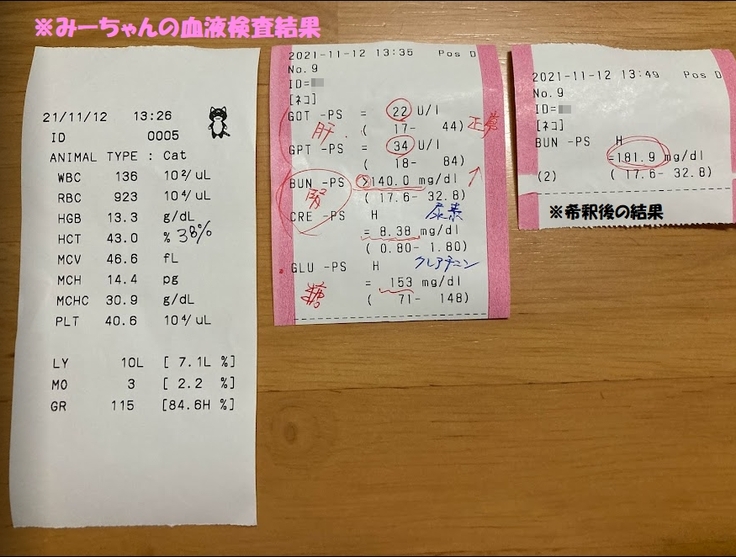 ※みーちゃんの血液検査結果
21/11/12 13:26
ID 0005
ANIMAL TYPE : Cat
WBC 136 10²/uL
RBC 923 10⁴/uL
HGB 13.3 g/dL
HCT 43.0 % 38%
MCV 46.6 fL
MCH 14.4 pg
MCHC 30.9 g/dL
PLT 40.6 10⁴/uL
LY 10L [ 7.1L %]
MO 3 [ 2.2 %]
GR 115 [84.6H %]
2021-11-12 13:35 Pos D
No.9
ID=
[ネコ]
GOT -PS = 22 U/l
肝 ( 17- 44) 正常
GPT -PS = 34 U/l
( 18- 84)
BUN -PS >140.0 mg/dl
腎 ( 17.6- 32.8)
尿素
CRE -PS H
= 8.38 mg/dl
( 0.80- 1.80)
クレアチニン
GLU -PS H
= 153 mg/dl
糖 ( 71- 148)
2021-11-12 13:49 Pos D
No.9
ID=
[ネコ]
BUN -PS H
=181.9 mg/dl
(2) ( 17.6- 32.8)
※希釈後の結果